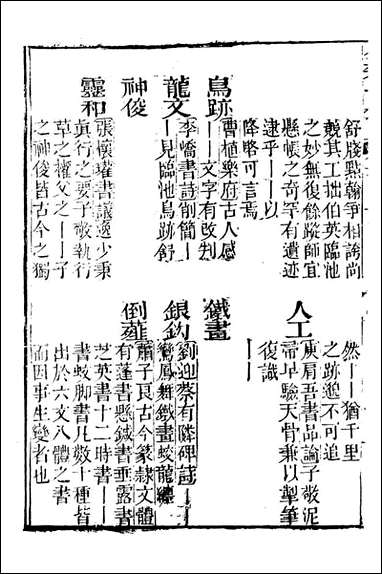 舒牋點翰爭相誇尚
競其工拙伯英臨池
之妙無復餘蹤師宜
懸帳之奇罕有遺迹
逮乎——以
降略可言焉
鳥跡
曹植樂府古人感
——文字有改判
龍文
李嶠書詩削簡
—見臨池鳥跡舒
神俊
靈和
張懷瓘書議逸少秉
真行之要子敬執行
草之權父之——子
之神俊皆古今之獨
然——猶千里
之跡邈不可追
人工
庾肩吾書品論子敬泥
帚早驗天骨兼以掣筆
復識
——
鐵畫
銀鈎
劉迎蔡有隣碑詩——
鸞鳳舞鐵畫蛟龍纏
倒薤
蕭子良古今篆隸文體
有蓬書懸鍼書垂露書
芝英書十二時書——
書蚊脚書凡數十種皆
出於六文八體之書
而因事生變者也